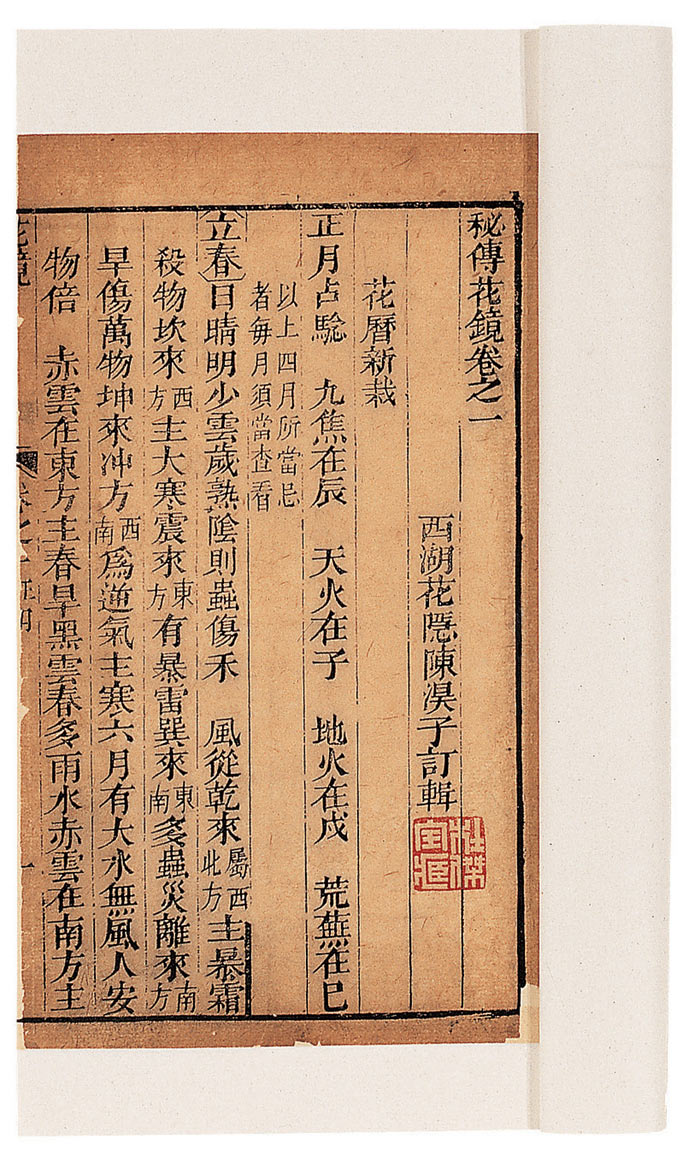 秘傳花鏡卷之一
西湖花隱陳淏子訂輯
花曆新栽
正月占騐　九焦在辰　天火在子　地火在戌　荒蕪在巳
以上四月所當忌
者每月須當查看
立春日晴明少雲歲熟陰則蟲傷禾　風從乾來屬西北方主暴霜
殺物坎來西方主大寒震來東方有暴雷巽來東南多蟲災離來南方
旱傷萬物坤來冲方西南爲逆氣主寒六月有大水無風人安
物倍　赤雲在東方主春旱黑雲春多雨水赤雲在南方主